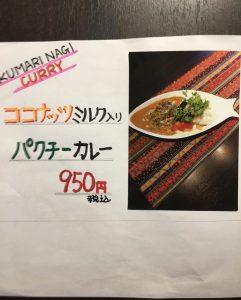 KUMARI NAGI
CURRY
ココナッツミルク入り
パクチーカレー
950円
税込